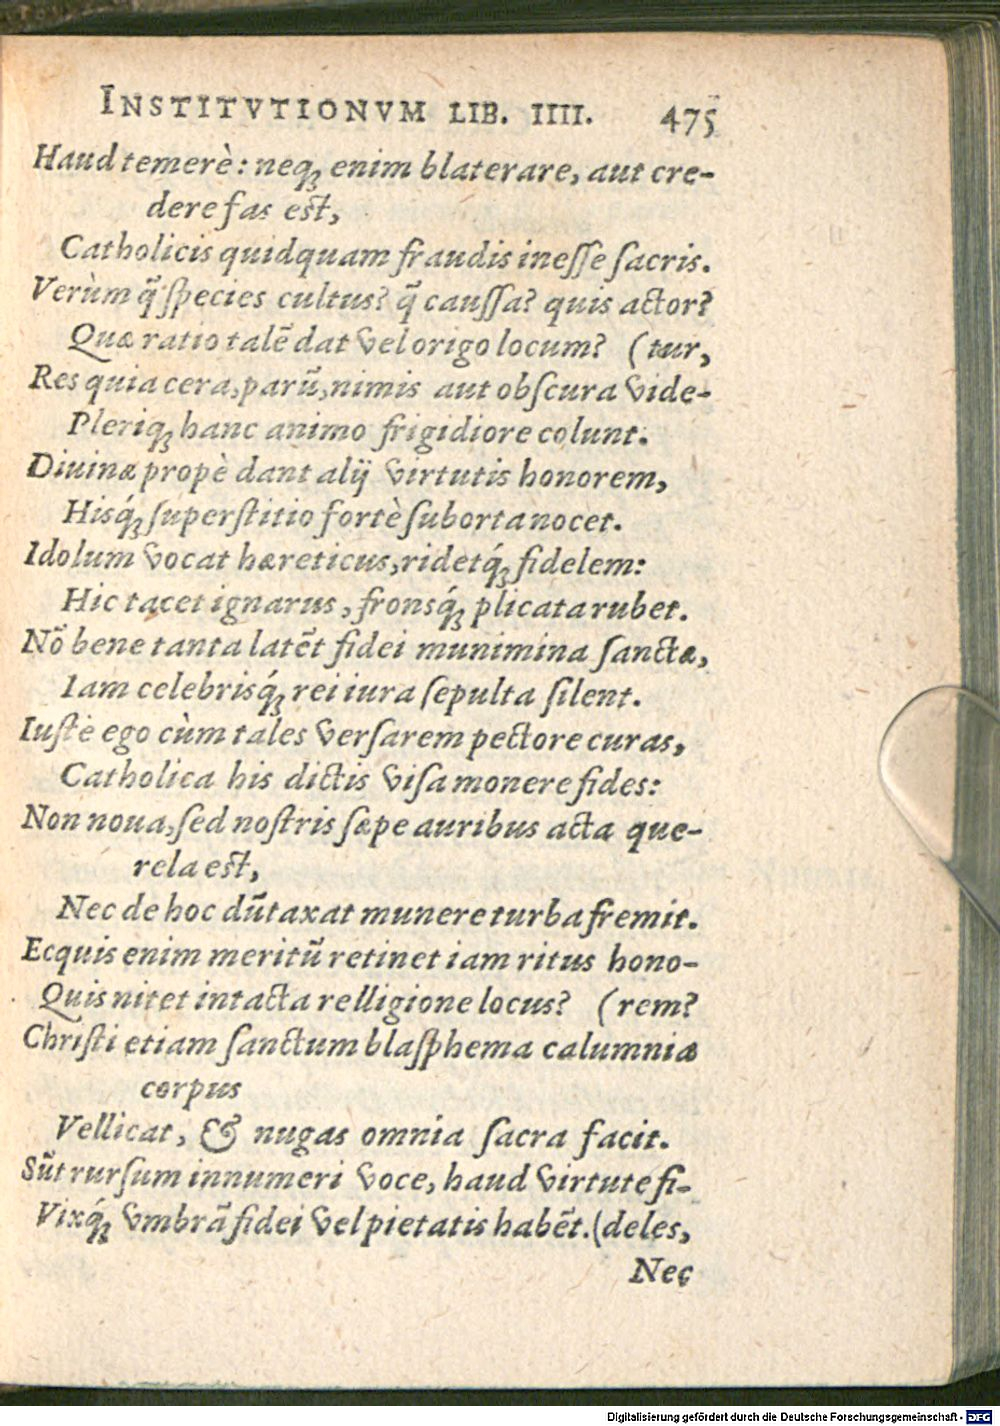 INSTITVTIONVM LIB. IIII. 475
Haud temerè: neq́ꝫ enim blaterare, aut cre-
dere fas est,
Catholicis quidquam fraudis inesse sacris.
Verùm q̃ species cultus? q̃ caussa? quis actor?
Quæ ratio talẽ dat vel origo locum? (tur,
Res quia cera, parũ, nimis aut obscura vide-
Pleriqꝫ hanc animo frigidiore colunt.
Diuinæ propè dant alij virtutis honorem,
Hisq́ꝫ superstitio fortè suborta nocet.
Idolum vocat hæreticus, ridetq́ꝫ fidelem:
Hic tacet ignarus, fronsq́ꝫ plicata rubet.
Nõ bene tanta latẽt fidei munimina sanctæ,
Iam celebrisq́ꝫ rei iura sepulta silent.
Iuste ego cùm tales versarem pectore curas,
Catholica his dictis visa monere fides:
Non noua, sed nostris sæpe auribus acta que-
rela est,
Nec de hoc dũtaxat munere turba fremit.
Ecquis enim meritũ retinet iam ritus hono-
Quis nitet intacta relligione locus? (rem?
Christi etiam sanctum blasphema calumniæ
corpus
Vellicat, & nugas omnia sacra facit.
Sũt rursum innumeri voce, haud virtute fi-
Vixq́ꝫ vmbrã fidei vel pietatis habẽt. (deles,
Nec
Digitalisierung gefördert durch die Deutsche Forschungsgemeinschaft - DFG